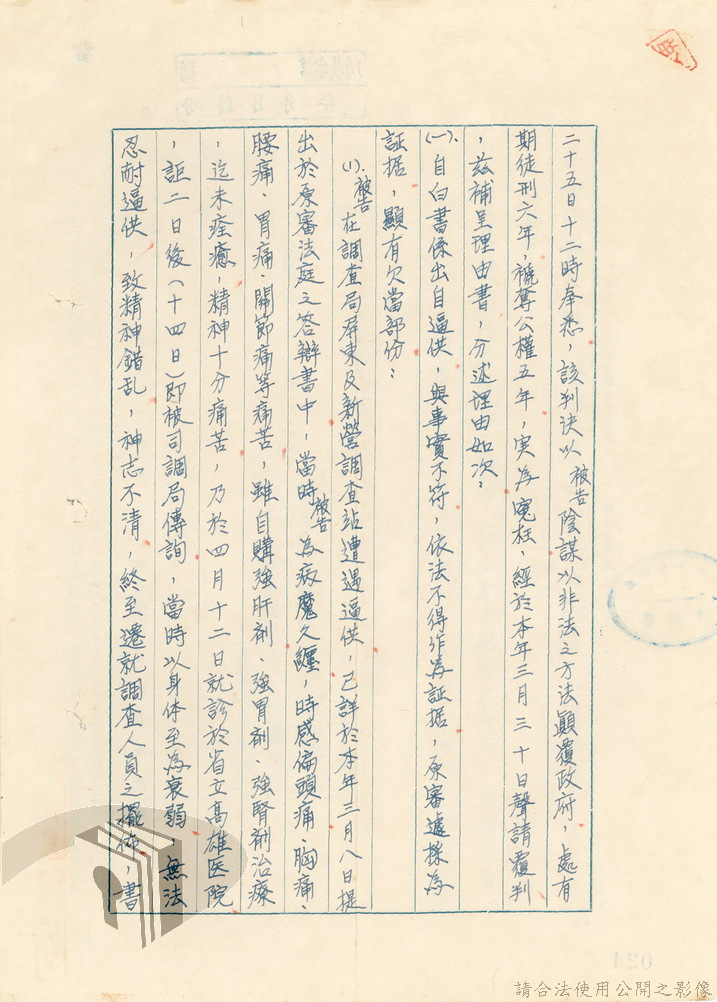 二十五日十二時奉悉，該判決以被告陰謀以非法之方法顛覆政府，處有
期徒刑六年，褫奪公權五年，実為冤枉，經於本年三月三十日聲請覆判
，茲補呈理由書，分述理由如次：
(一)、自白書係出自逼供，與事實不符，依法不得作為証据，原審遽採為
証据，顯有欠當部份：
(1)、被告在調查局屏東及新營調查站遭遇逼供，已詳於本年三月八日提
出於原審法庭之答辯書中，當時被告為病魔久纏，時感偏頭痛、胸痛、
腰痛、胃痛、關節痛等痛苦，雖自購強肝剂、強胃剂、強腎剂治療
，迄未痊癒，精神十分痛苦，乃於四月十二日就診於省立高雄医院
，詎二日後(十四日)即被司調局傳詢，當時以身体至為衰弱，無法
忍耐逼供，致精神錯乱，神志不清，終至遷就調查人員之擺佈，書
024
請合法使用公開之影像